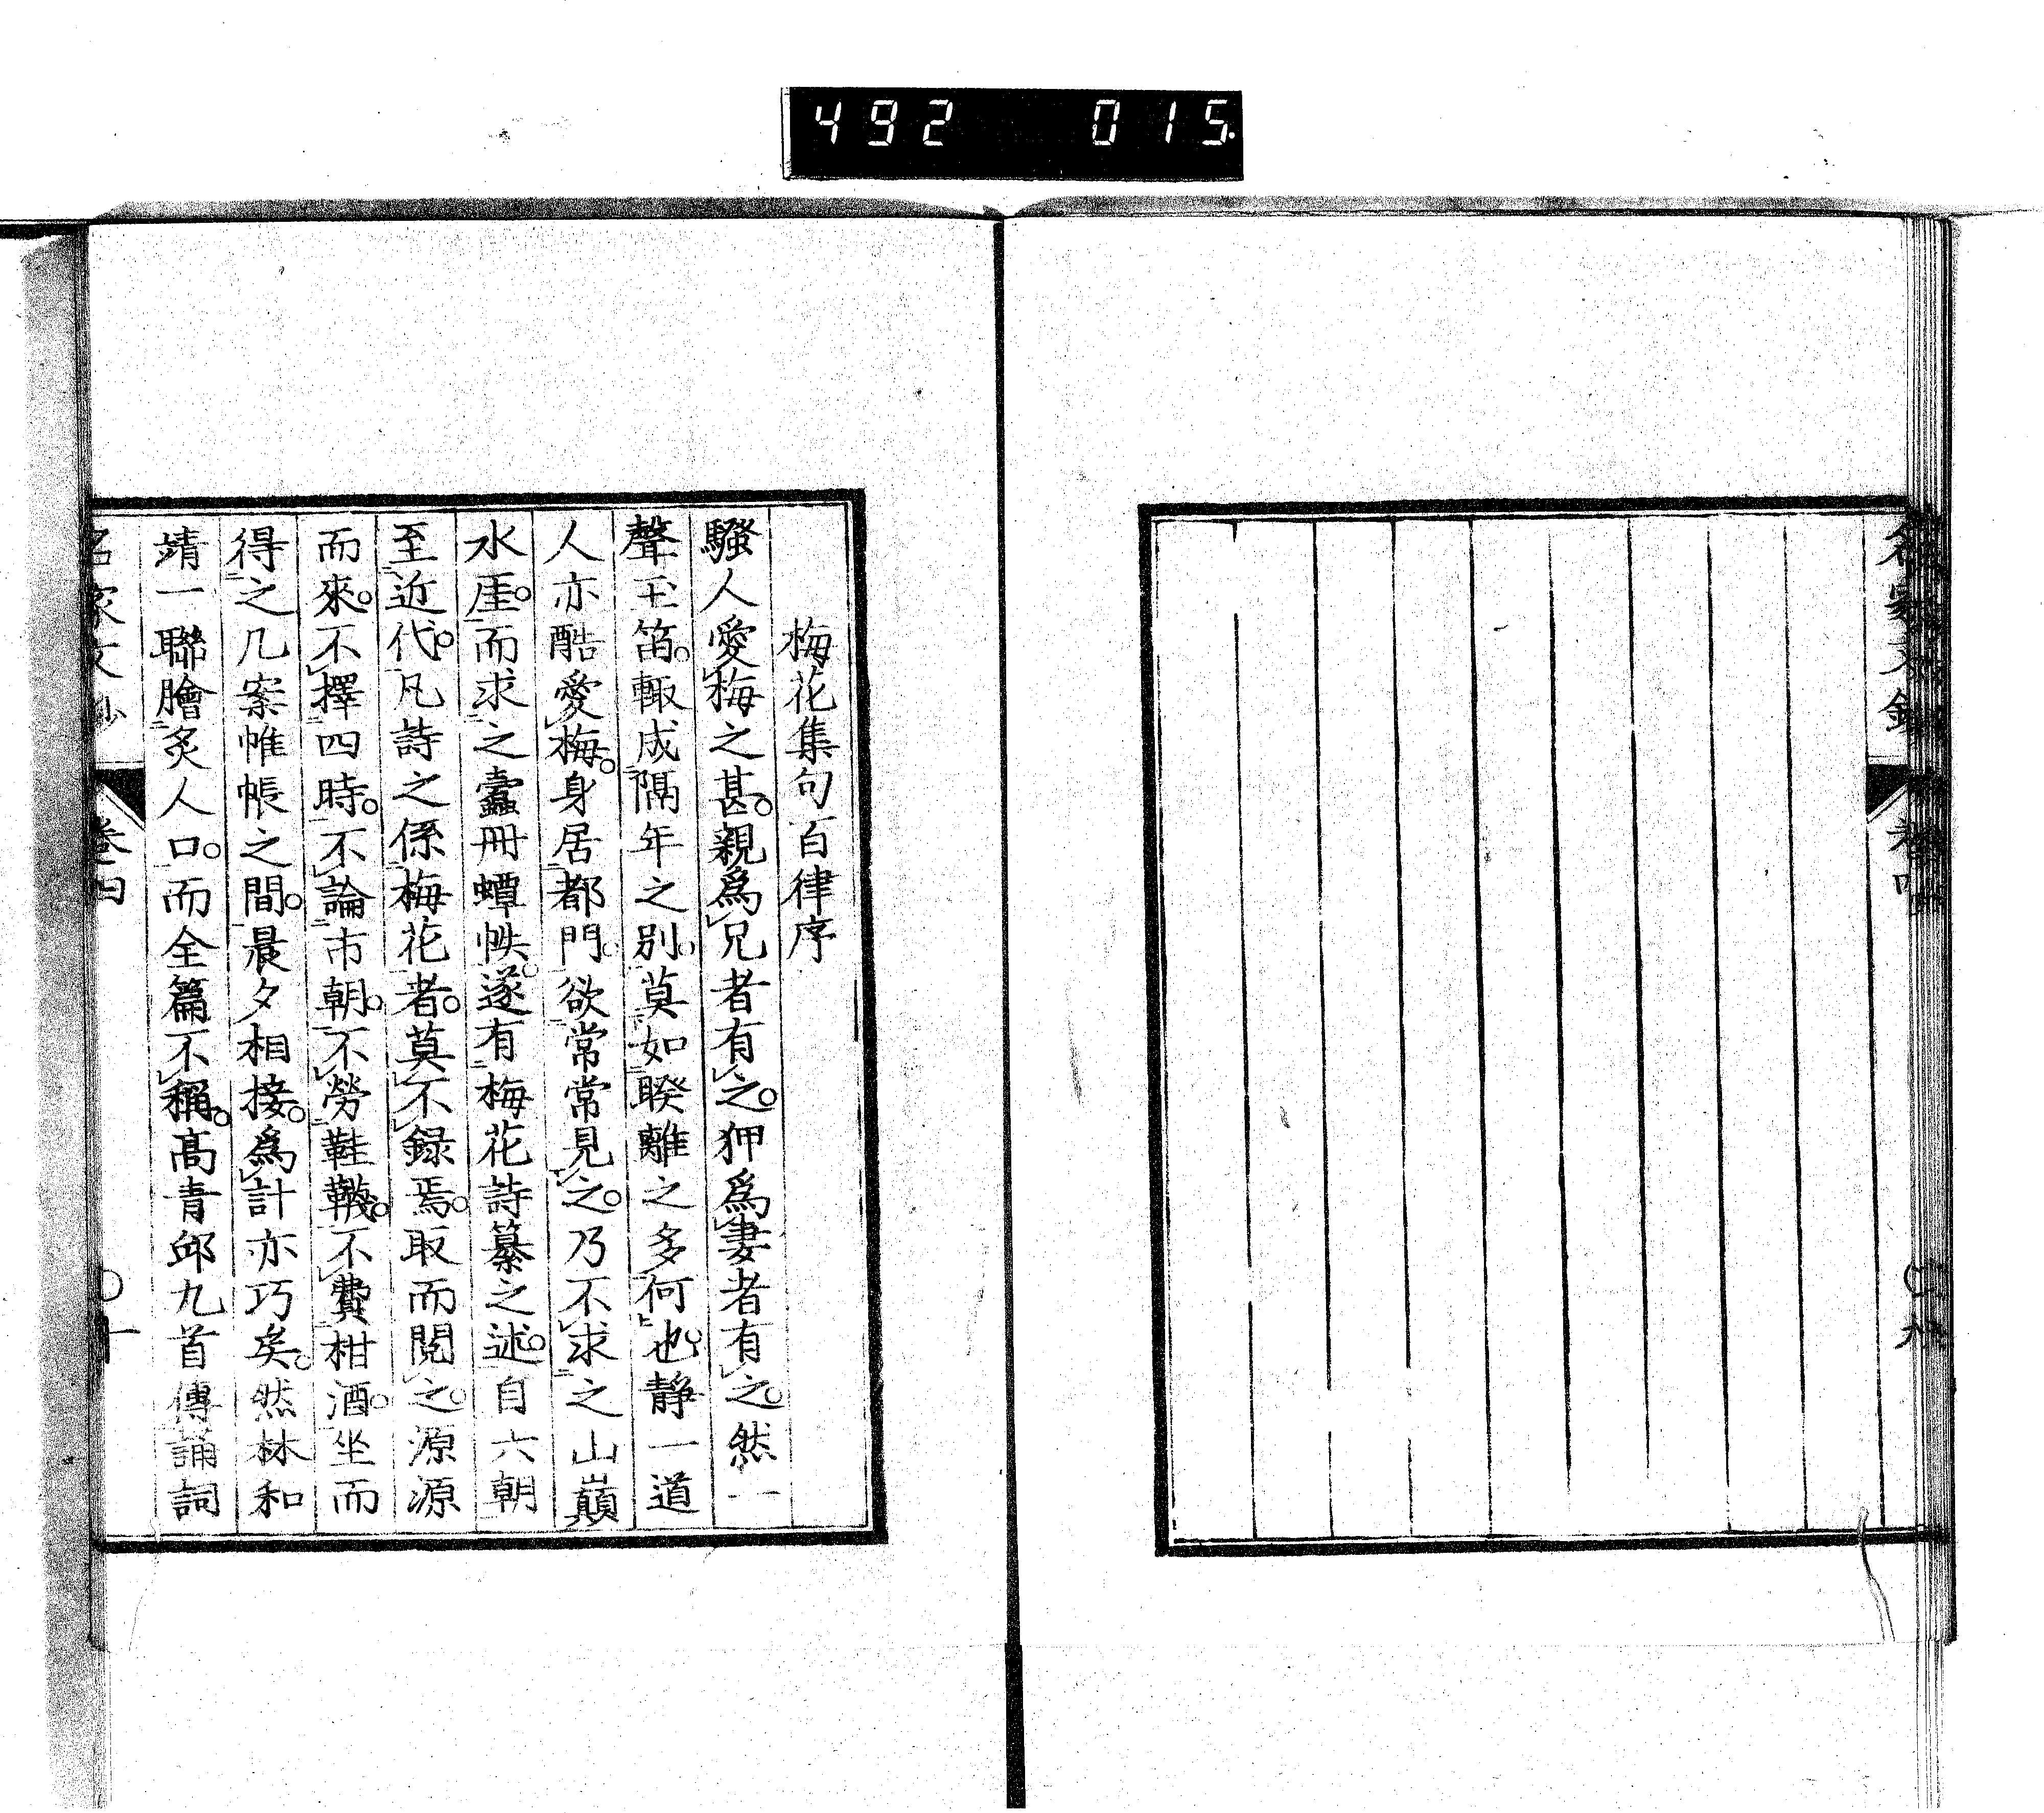 492 015
名家文鈔 卷四
梅花集句百律序
騷人愛梅之甚。親爲兄者有之。狎爲妻者有之。然一
聲玉笛。輙成隔年之別。莫如睽離之多何也。靜一道
人亦酷愛梅。身居都門。欲常常見之。乃不求之山巔
水厓。而求之蠹冊蟫帙。遂有梅花詩纂之述。自六朝
至近代。凡詩之係梅花者。莫不録焉。取而閱之。源源
而來。不擇四時。不論市朝。不勞鞋韈。不費柑酒。坐而
得之几案帷帳之間。晨夕相接。爲計亦巧矣。然林和
靖一聯膾炙人口。而全篇不稱。高青邱九首傳誦詞
名家文鈔 卷四 〇十